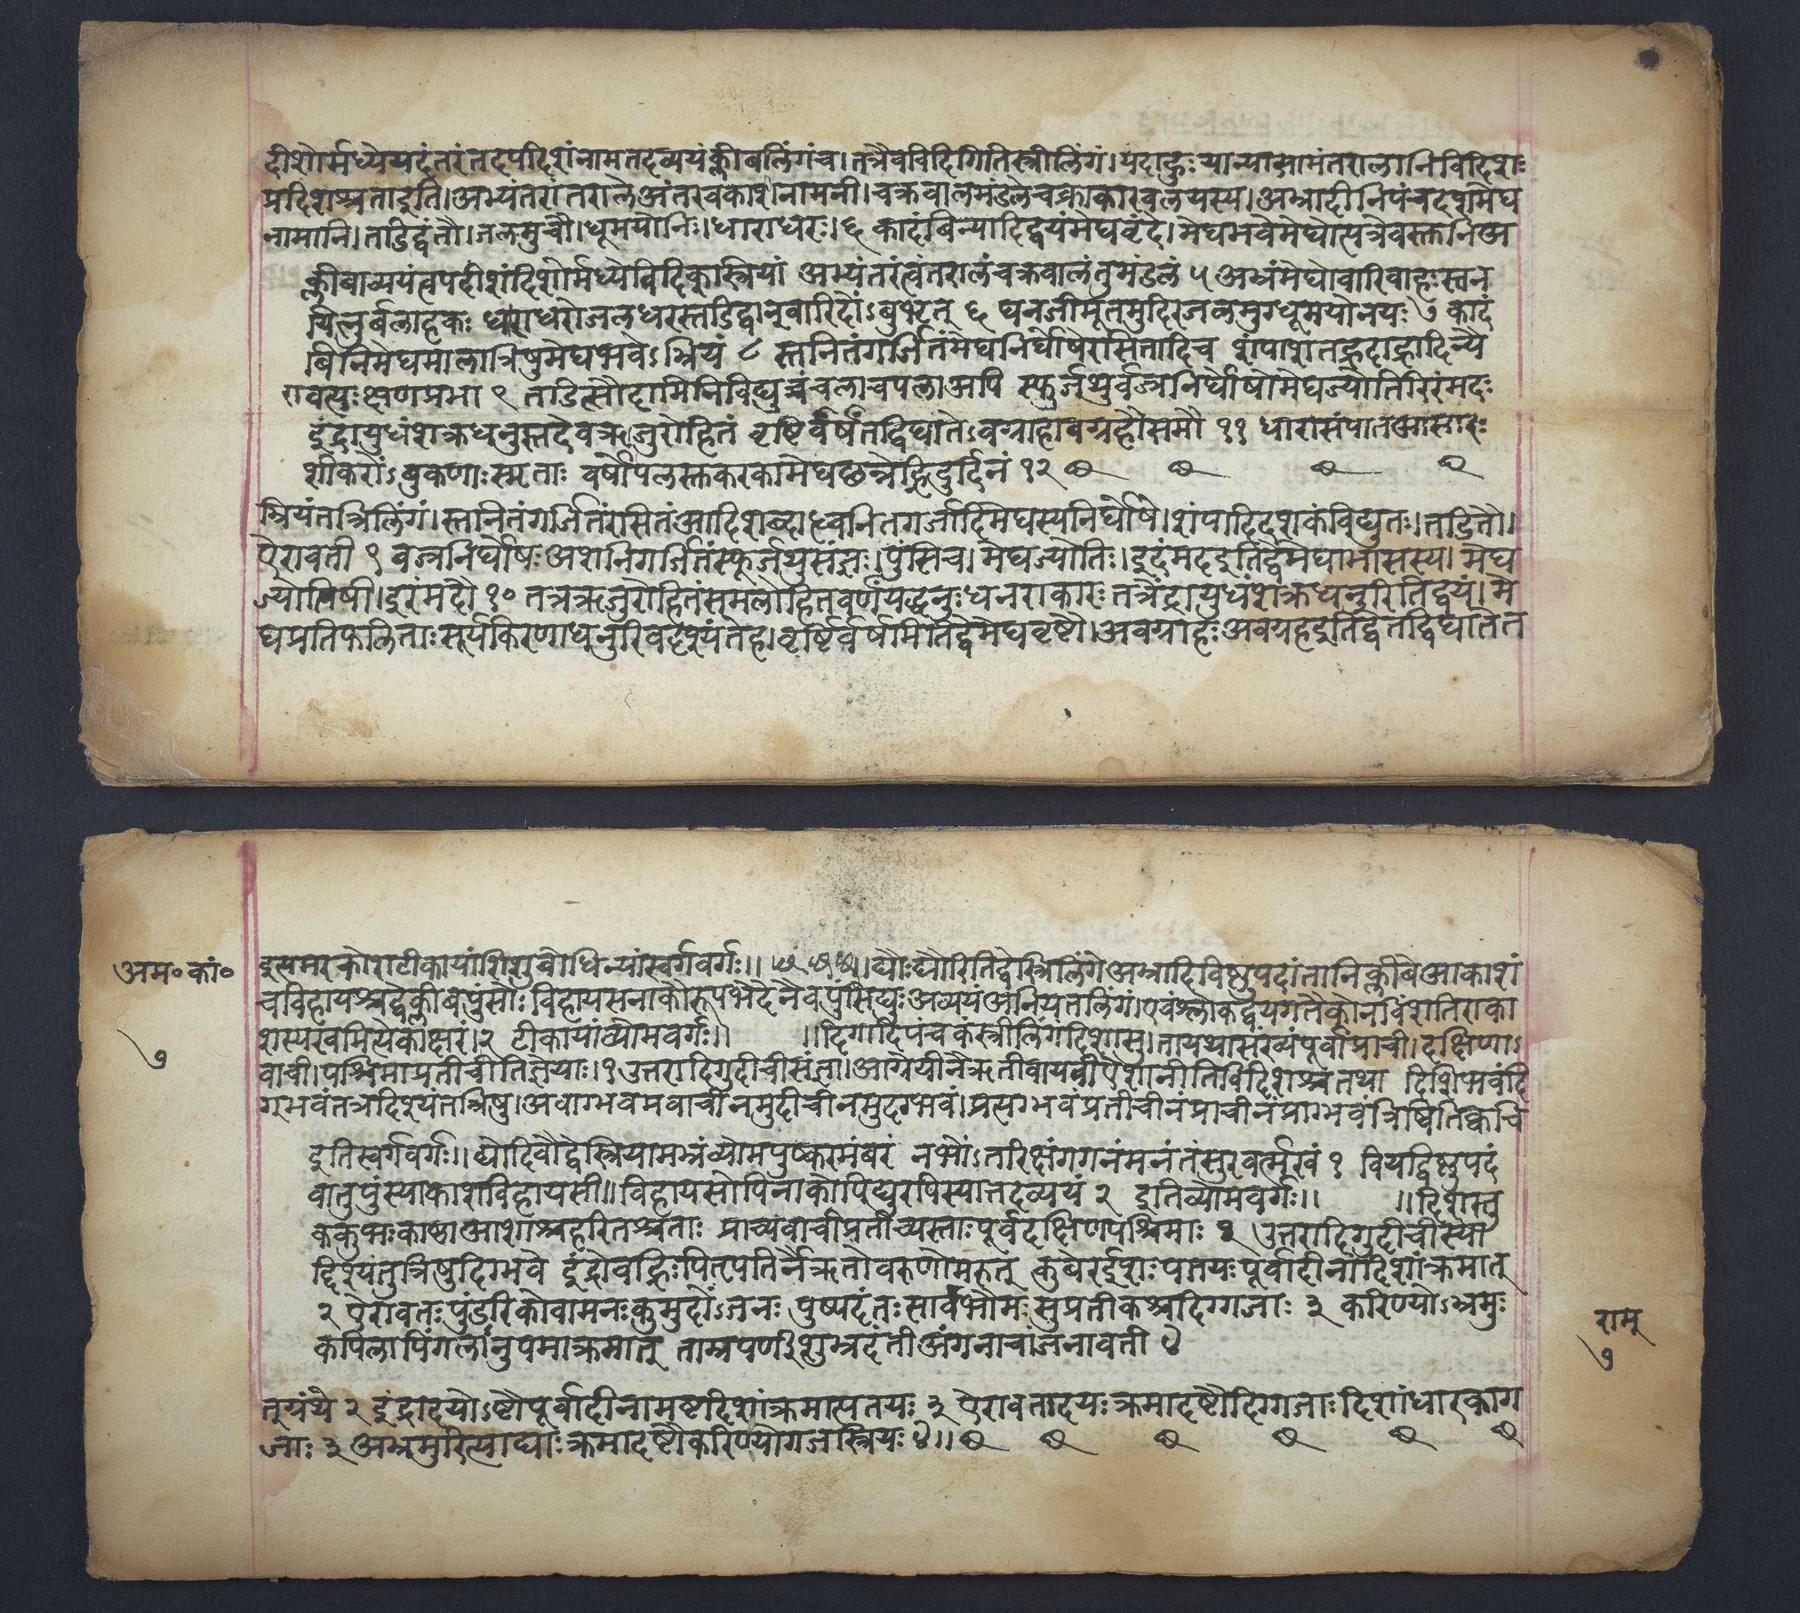 दीशोर्मध्येयदंतरंतदपदिशंनामतदव्ययंक्लीबलिंगंच।तत्रैवविदिगितिस्त्रीलिंगं।यदाहुःयान्यासामंतरालानिविदिशः
प्रदिशश्चताइति।अभ्यंतरांतरालेअंतरवकाशनामनी।चक्रवालमंडलेचक्राकारवलयस्य।अभ्रादीनिपंचदशमेघ
नामानि।तडिद्वंतौ।जलमुचौ।धूमयोनिः।धाराधरः।६ कादंबिन्यादिद्वयंमेघवृंदे।मेघभवेमेघोत्पन्नेवस्तुनिअ
क्लीबाव्ययंत्वपदीशंदिशोर्मध्येविदिक्स्त्रियां अभ्यंतरंत्वंतरालंचक्रवालंतुमंडलं ५ अभ्रंमेघोवारिवाहःस्तन
यित्नुर्बलाहकः धाराधरोजलधरस्तडिद्वान्वारिदोंऽबुभृत् ६ घनजीमूतमुदिरजलमुग्धूमयोनयः ७ कादं
बिनिमेघमालात्रिषुमेघभवेऽभ्रियं ८ स्तनितंगर्जितंमेघनिर्घोषेरसितादिच शंपाशतह्रदाह्रादिन्यै
रावत्यःक्षणप्रभा ९ तडित्सौदामिनिविद्युच्चंचलाचपलाअपि स्फुर्जथुर्वज्रनिर्घोषोमेघज्योतिरिरंमदः
इंद्रायुधंशक्रधनुस्तदेवऋजुरोहितं वृष्टिर्वर्षंतद्विघातेऽवग्राहावग्रहौसमौ ११ धारासंपातआसारः
शीकरोंऽबुकणाःस्मृताः वर्षोपलस्तुकरकामेघछन्नेह्निदुर्दिनं १२
भ्रियंतत्रिलिंगं।स्तनितंगर्जितंरसितंआदिशब्दाध्वनितगर्जादिमेघस्यनिर्घोषे।शंपादिदशकंविद्युतः।तडितौ।
ऐरावती ९ वज्रनिर्घोषःअशनिगर्जितंस्फूर्जथुसंज्ञः।पुंसिच।मेघज्योतिः।इदंमदइतिद्वेमेघाभासस्य।मेघ
ज्योतिषी।इरंमदौ १० तत्रऋजुरोहितंसमलोहितवर्णंयद्धनुःधनराकारः तत्रैंद्रायुधंशक्रधनुरितिद्वयं।मे
घप्रतिफलिताःसूर्यकिरणाधनुरिवदृश्यंतेहा।वृष्टिर्वर्षमितिद्वेमेघवृष्टौ।अवग्राहःअवग्रहइतिद्वेतद्विघातेत
अम॰ कां॰
७
इत्यमरकोशटीकायांशिशुबोधिन्यांस्वर्गवर्गः।। ।।द्यौःद्यौरितिद्वेस्त्रिलिंगेअभ्रादिविष्णुपदांतानिक्लीबेआकाशं
चविहायश्चद्वेक्लीबपुंसोः विहायसनाकौरूपभेदेनैवपुंसिद्युःअव्ययंअनियतलिंगं।एवंश्लोकद्वयगतैकोनविंशतिराका
शस्यखमित्येकाक्षरं।२ टीकायांव्योमवर्गः।। ।।दिगादिपंचकंस्त्रीलिंगंदिशासु।तायथासंख्यंपूर्वाप्राची।दक्षिणाऽ
वाची।पश्चिमाप्रतीचीतिज्ञेयाः।१उत्तरादिगुदीचीसंज्ञा।आग्नेयीनैऋतीवायवीऐशानीतिविदिशश्चतथा दिशिभवंदि
ग्भवंतत्रदिश्यंतत्त्रिषु।अवाग्भवमवाचीनमुदीचीनमुदग्भवं।प्रत्यग्भवंप्रतीचीनंप्राचीनंप्राग्भवंत्रिष्वितिक्वचि
इतिस्वर्गवर्गः।। द्योदिवौद्वेस्त्रियामभ्रंव्योमपुष्करमंबरं नभोंऽतरिक्षंगगनंमनंतंसुरवर्त्मखं १ वियद्विष्णुपदं
वातुपुंस्याकाशविहायसी।।विहायसोपिनाकोपिद्युरपिस्यात्तदव्ययं २ इतिव्योमवर्गः।। ।।दिशस्तु
ककुभःकाष्ठाआशाश्चहरितश्चताः प्राच्यवाचीप्रतीच्यस्ताःपूर्वदक्षिणपश्चिमाः १ उत्तरादिगुदीचीस्या
द्दिश्यंतुत्रिषुदिग्भवे इंद्रोवह्निःपितृपतिर्नैऋतोवरुणोमरुत् कुबेरईशःपतयःपूर्वादीनांदिशांक्रमात्
२ ऐरावतःपुंडरिकोवामनःकुमुदोंऽजनः पुष्पदंतःसार्वभौमःसुप्रतीकश्चदिग्गजाः ३ करिण्योऽभ्रमुः
कपिलापिंगलानुपमाक्रमात् ताम्रपर्णीशुभ्रदंतीअंगनाचांजनावती ४
राम्
७
त्ग्रंथे २ इंद्रादयोऽष्टौपूर्वादीनामष्टदिशांक्रमात्पतयः ३ ऐरावतादयःक्रमादष्टौदिग्गजाःदिशांधारकाग
जाः ३ अभ्रमुरित्याद्याःक्रमादष्टौकरिण्योगजस्त्रियः ४।।